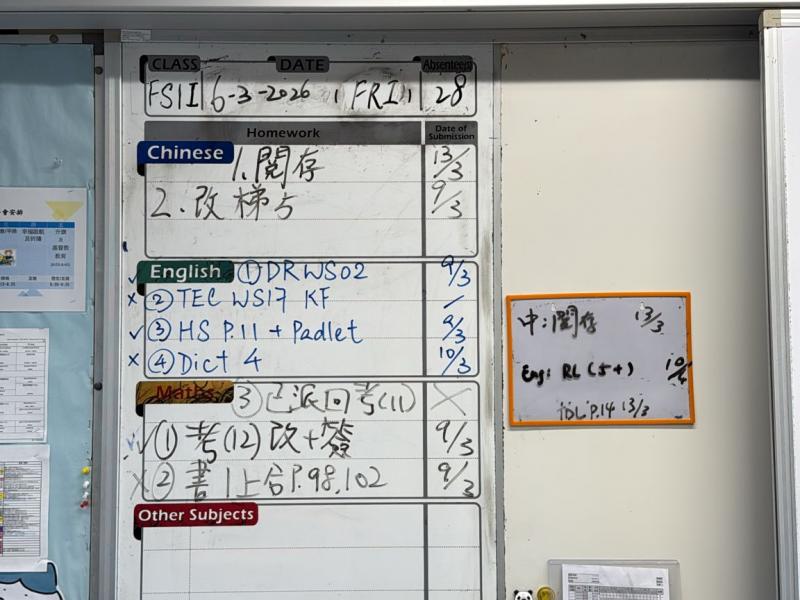 CLASS DATE Absentees
FSII 6-3-2026 , FRI, 28
Homework Date of Submission
Chinese 1.閱存 13/3
2.改梯5 9/3
English ①DRWS02 9/3
✓
x ②TEC WS17 KF /
✓ ③HS P.11 + Padlet 9/3
x ④Dict 4 10/3
Maths ③已派回考(11) X
✓①考(12)改+簽 9/3
X②書1上合P.98,102 9/3
Other Subjects
中:閱存 13/3
Eng: RL (5+) 10/4
IDL P.14 13/3